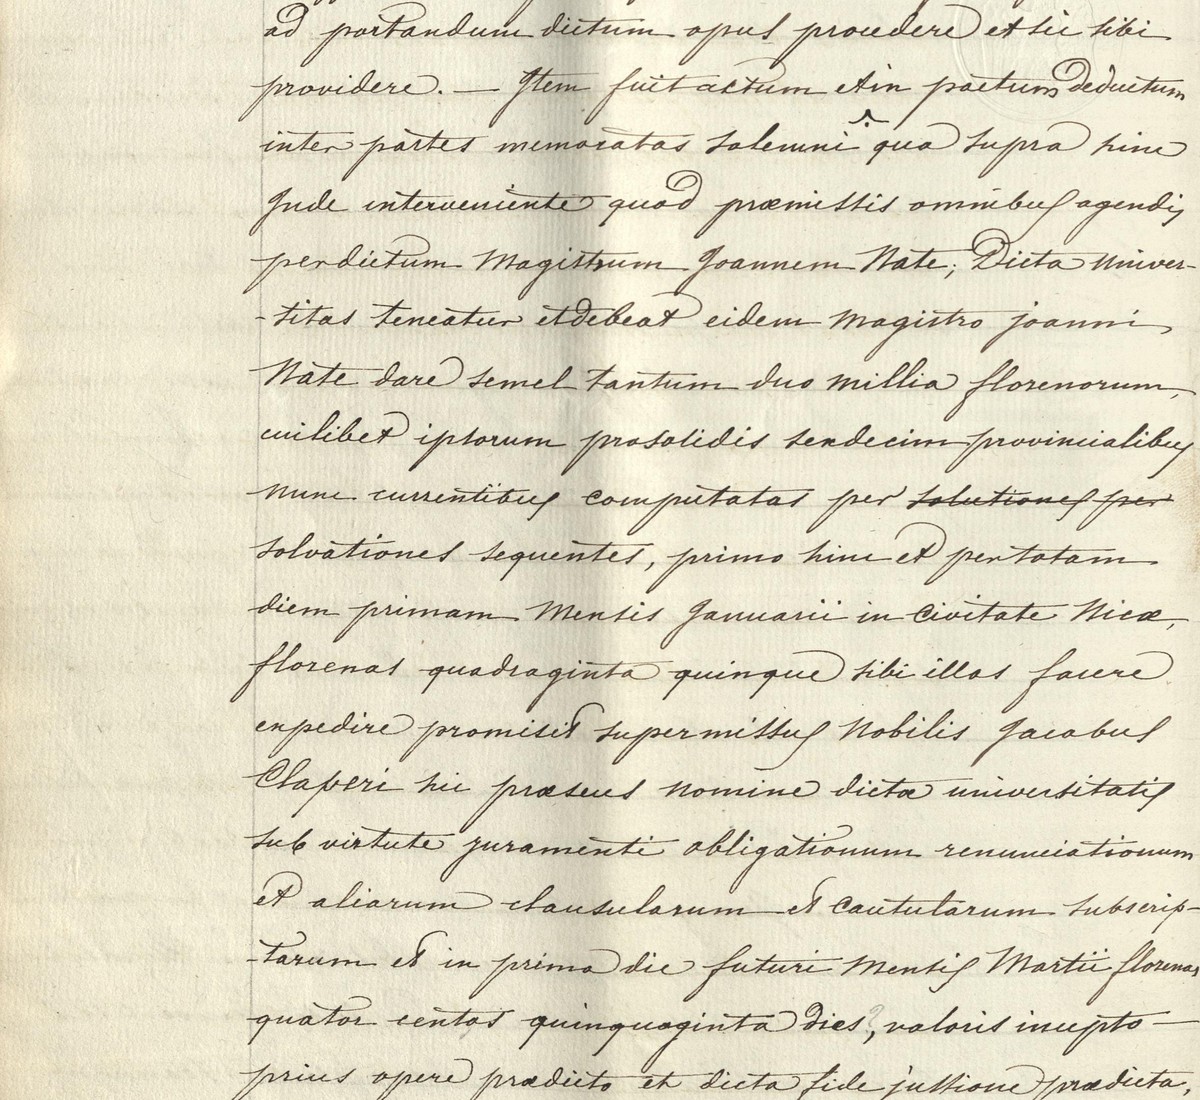 ad portandum dictum opus procedere et sic sibi
providere. — Item fuit actum et in pactum deductum
inter partes memoratas solemni qua supra hinc
Inde interveniente quod præmissis omnibus agendis
per dictum Magistrum Joannem Nate; Dicta univer-
-sitas teneatur et debeat eidem Magistro joanni
Nate dare semel tantum duo millia florenorum,
cuilibet ipsorum pro solidis sexdecim provincialibus
nunc currentibus computatas per solutiones per
solvationes sequentes, primo hinc et per totam
diem primam Mensis Januarii in Civitate Nicæ,
florenas quadraginta quinque sibi illas facere
expedire promisit supermissus Nobilis Jacobus
Claperi hic præsens nomine dictæ universitatis
sub virtute juramenti obligationum renunciationum
et aliarum clausularum et cautularum subscrip-
-tarum et in prima die futuri Mensis Martii florenas
quator centas quinquaginta dies?, valoris incepto
prius opere prædicto et dicta fide jussione prædicta,